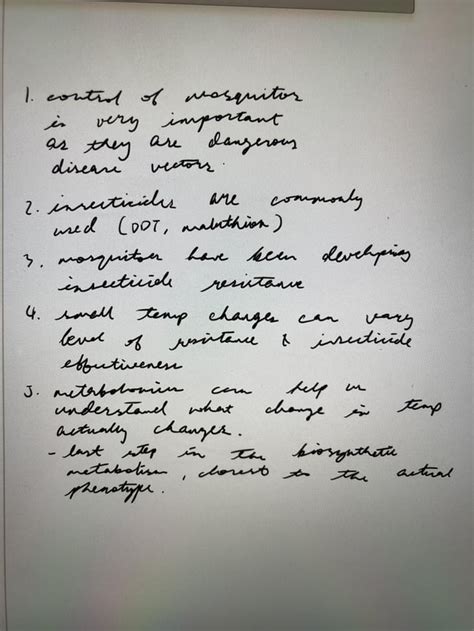 1. control of mosquitos
is very important
as they are dangerous
disease vectors.
2. insecticides are commonly
used (DDT, malathion)
3. mosquitoes have been developing
insecticide resistance
4. small temp changes can vary
level of resistance & insecticide
effectiveness
5. metabolomics can help us
understand what change in temp
actually changes.
- last step in the biosynthetic
metabolism, closest to the actual
phenotype.